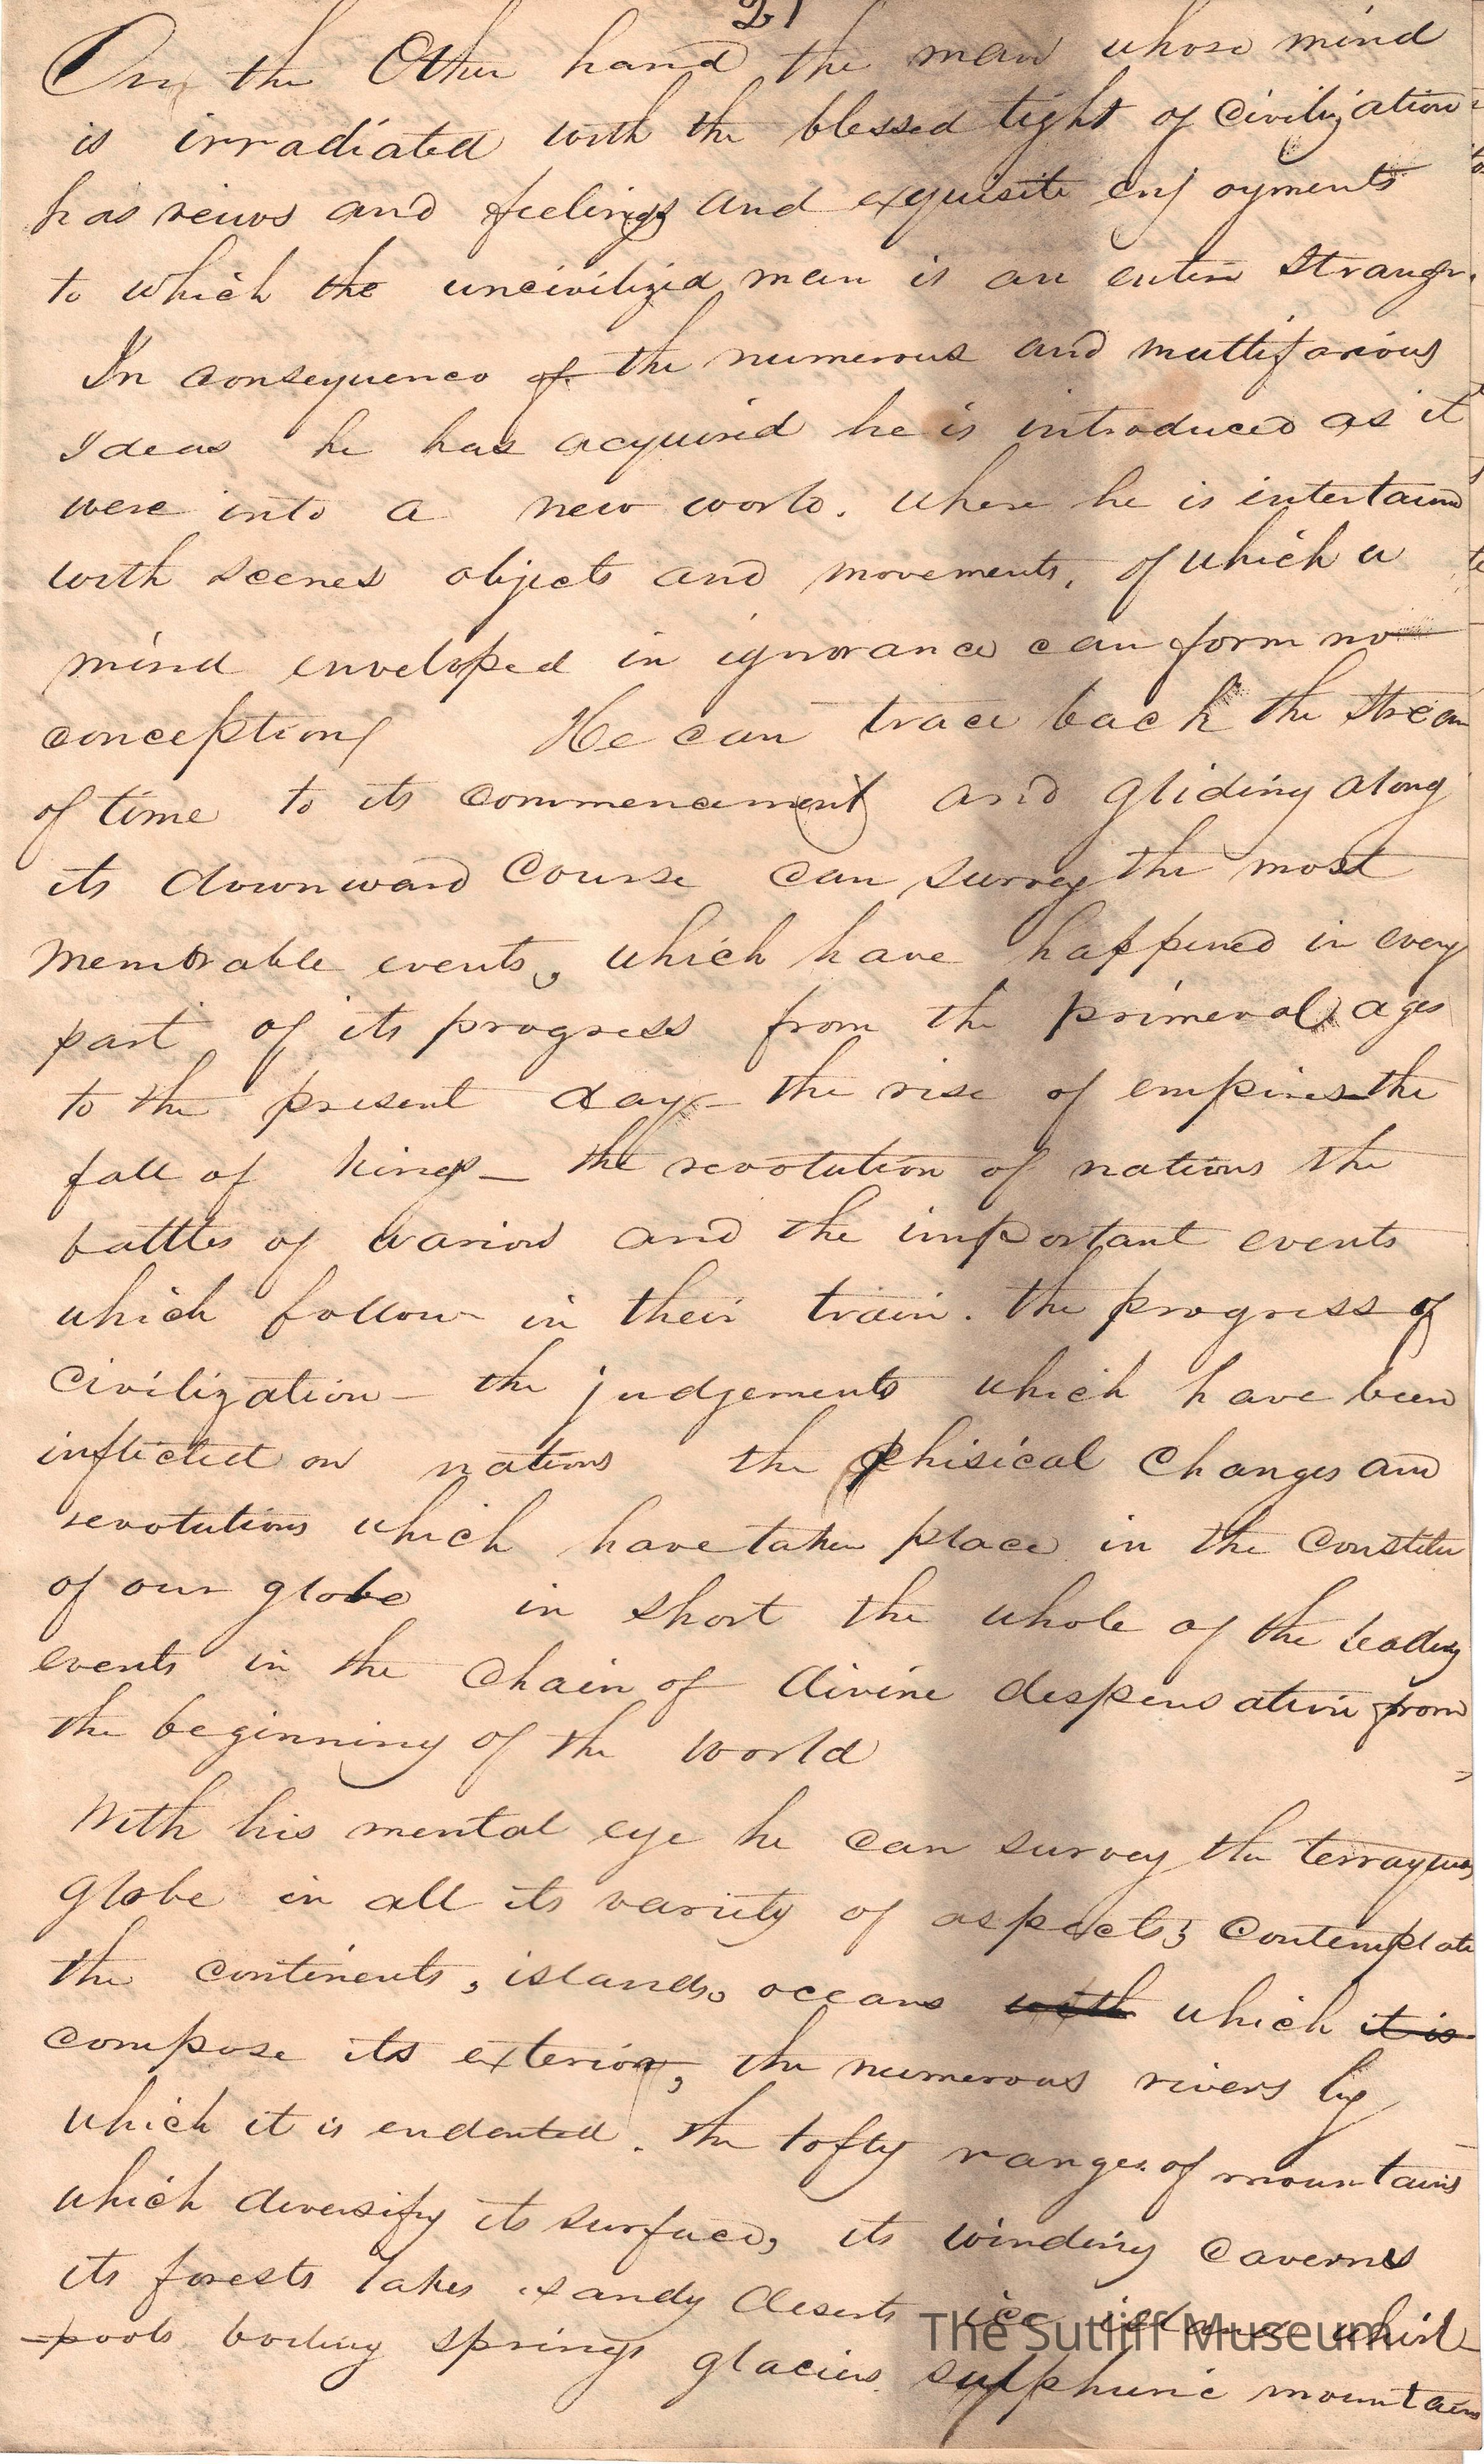 21
On the Other hand the man whose mind
is irradiated with the blessed light of Civilization
has veiws and feelings and exquisite enjoyments
to which the uncivilizid man is an entire Stranger.
In consequence of the numerous and multifarious
Ideas he has acquired he is introduced as it
were into a new world. where he is intertaind
with scenes objects and movements, of which a
mind enveloped in ignorance can form no
conception He can trace back the Stream
of time to its commencement and gliding along
its downward Course can survey the most
memorable events, which have happened in every
part of its progress from the primeval ages
to the present day - the rise of empires the
fall of kings - the revolution of nations the
battles of wariors and the important events
which follow in their train. the progress of
Civilization - the judgements which have been
inflicted on nations the phisical Changes and
revolutions which have taken place in the Constitu
of our globe in short the whole of the leading
events in the Chain of divine despensation from
the beginning of the world
With his mental eye he can survey the terraqus
Globe in all its variety of aspects; Contemplate
the continents, islands, oceans with which it is
compose its exterior, the numerous rivers by
which it is endented. the lofty ranges of mountains
which diversify its surface, its winding Caverns
its forests lakes sandy deserts ice islans whirl
-pools boiling springs glaciers. sulphuric mountains
The Sutliff Museum